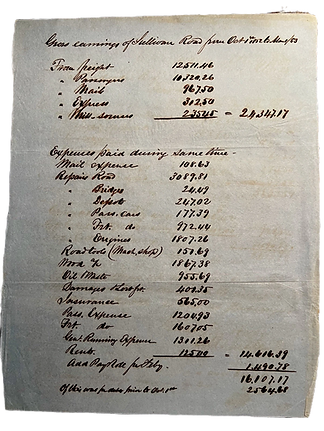 Gross earnings of Sullivan Road from Oct 1 1852 to
From freight 12511.46
" Passengers 10320.26
" Mail 967.50
" Express 312.50
" Mill. sources 235.45 = 24,347.17
Expences paid during same time -
Mail expence 108.63
Repairs Road 3089.81
" Bridges 24.49
" Depots 247.02
" Pass. cars 177.39
" Frt. do 972.44
" Engines 1807.26
Road tools (Mach. shop) 151.69
Wood &c 1867.38
Oil Waste 955.69
Damages 402.35
Insurance 565.00
Pass. Expense 1204.93
Frt do 1607.05
Genl. Running Expense 1301.26
Rents. 125.00 = 14.616.39
Add Pay Role for Feby. 1.490.78
16,107.17
Of this was prior to Oct. 1st 2564.68